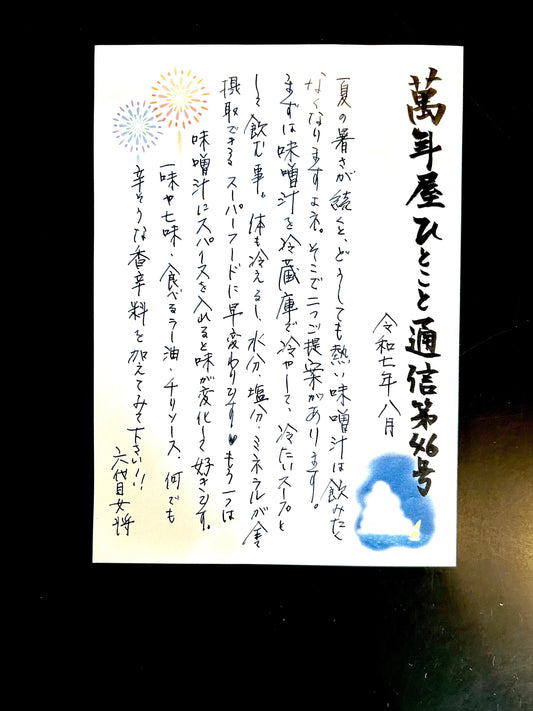 萬年屋ひとこと通信第46号
令和七年八月
夏の暑さが続くと、どうしても熱い味噌汁は飲みたく
なくなりますよネ。そこで二つご提案があります。
まずは味噌汁を冷蔵庫で冷やして、冷たいスープと
して飲む事。体も冷えるし、水分、塩分、ミネラルが全
摂取できるスーパーフードに早変わりです♥もう一つは
味噌汁にスパイスを入れると味が変化して好きです。
一味や七味・食べるラー油・チリソース、何でも
辛そうな香辛料を加えてみて下さい!!
六代目女将